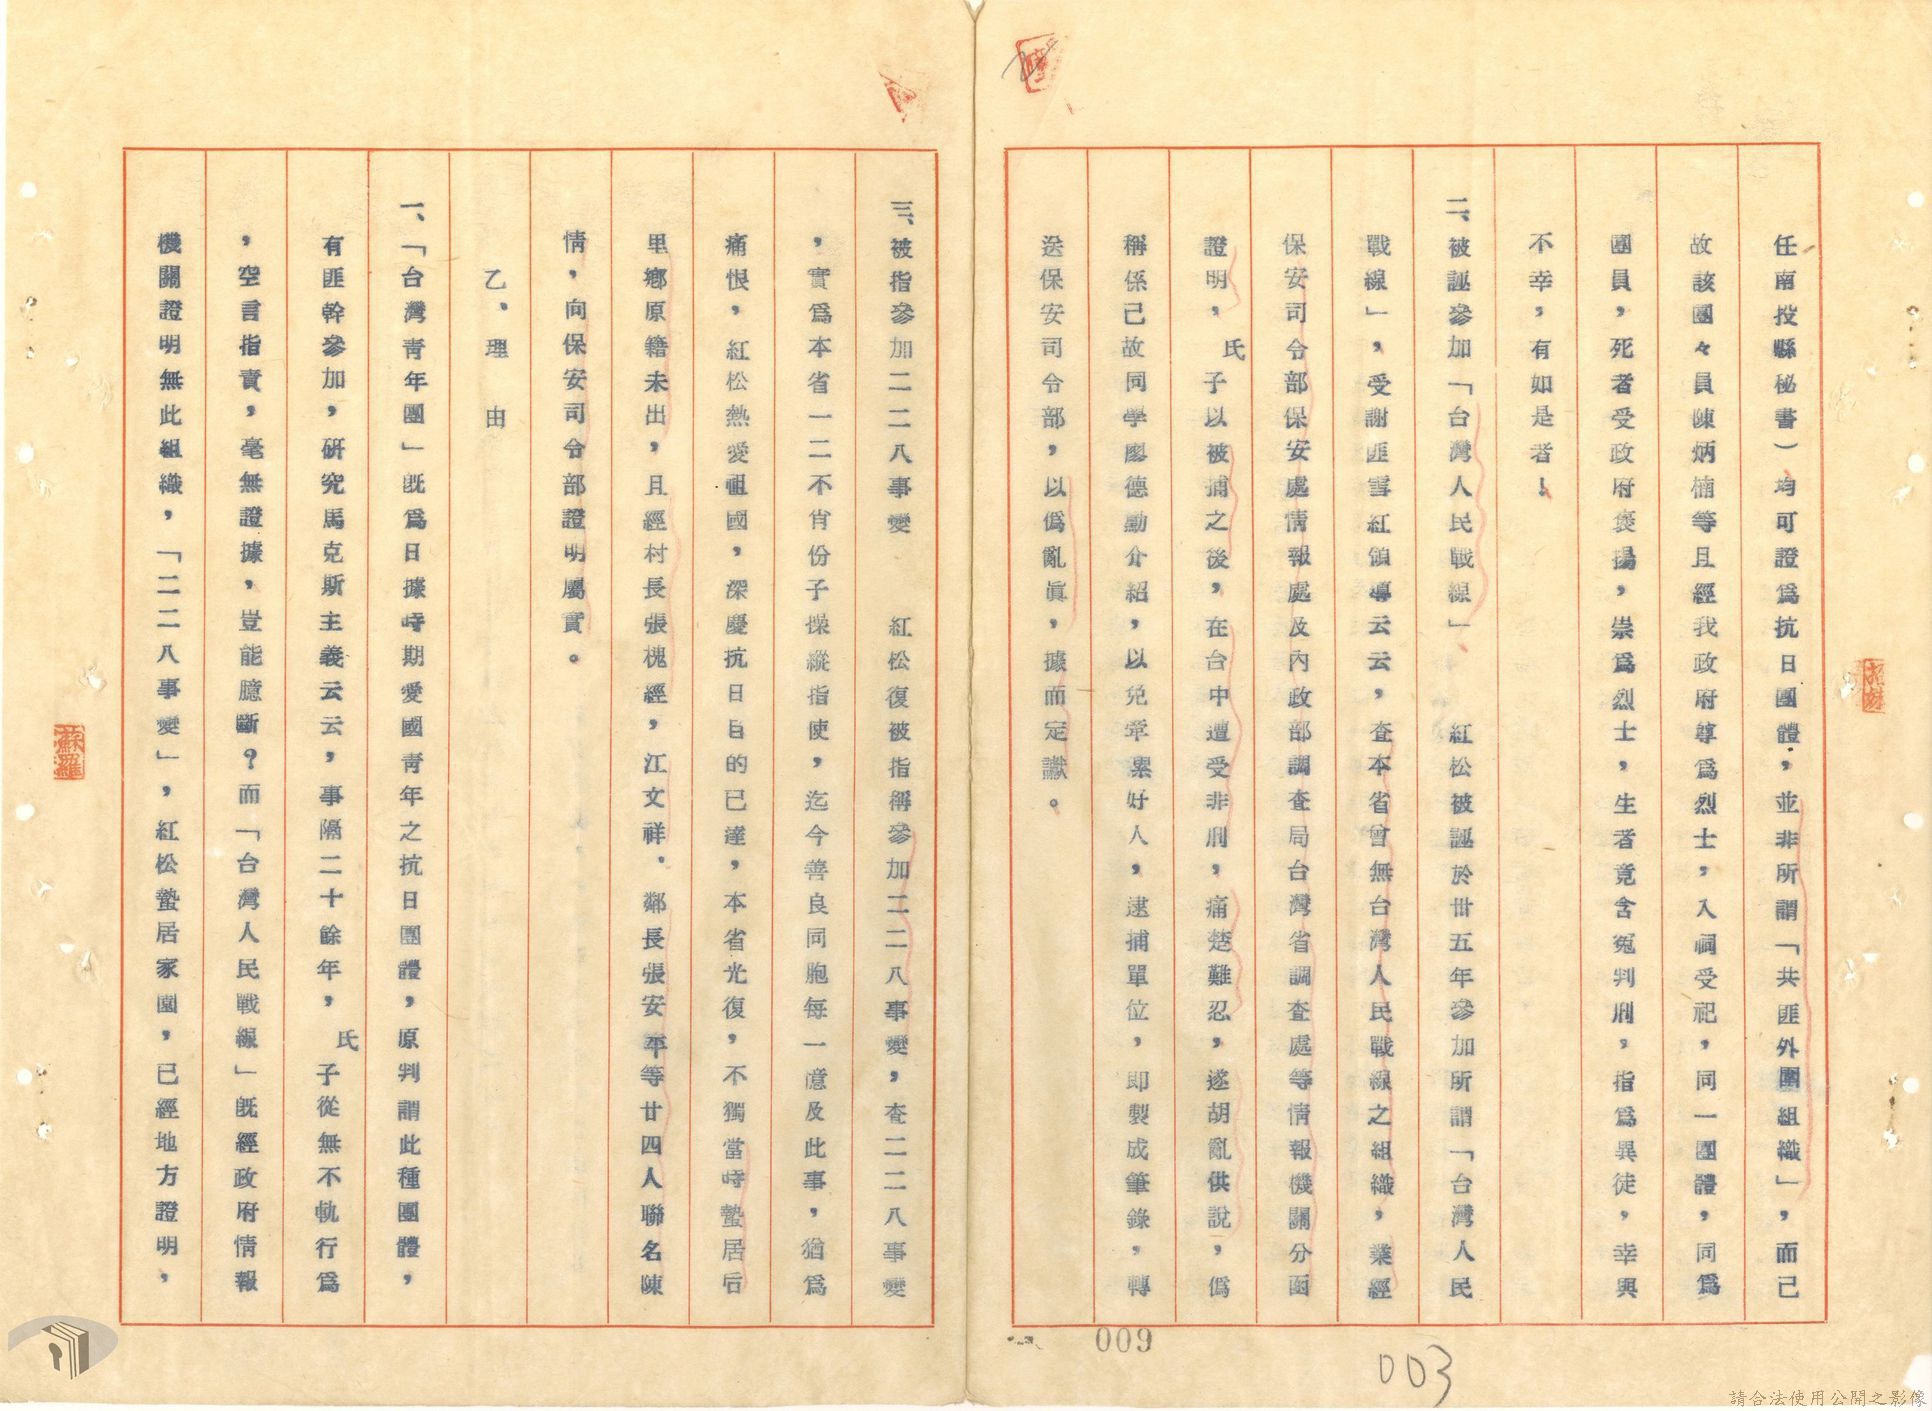 任南投縣秘書）均可證爲抗日團體，並非所謂「共匪外圍組織」，而已
故該團々員陳炳楠等且經我政府尊爲烈士，入祠受祀，同一團體，同爲
團員，死者受政府褒揚，崇爲烈士，生者竟含冤判刑，指爲異徒，幸與
不幸，有如是者！
二、被誣參加「台灣人民戰線」、　紅松被誣於卅五年參加所謂「台灣人民
戰線」，受謝匪雪紅領導云云，查本省曾無台灣人民戰線之組織，業經
保安司令部保安處情報處及內政部調查局台灣省調查處等情報機關分函
證明，氏子以被捕之後，在台中遭受非刑，痛楚難忍，遂胡亂供說，僞
稱係己故同學廖德勳介紹，以免牽累好人，逮捕單位，即製成筆錄，轉
送保安司令部，以僞亂眞，據而定讞。
三、被指參加二二八事變　紅松復被指稱參加二二八事變，查二二八事變
，實爲本省一二不肖份子操縱指使，迄今善良同胞每一憶及此事，猶爲
痛恨，紅松熱愛祖國，深慶抗日目的已達，本省光復，不獨當時蟄居后
里鄉原籍未出，且經村長張槐經，江文祥．鄰長張安平等廿四人聯名陳
情，向保安司令部證明屬實。
乙、理由
一、「台灣靑年團」旣爲日據時期愛國靑年之抗日團體，原判謂此種團體，
有匪幹參加，硏究馬克斯主義云云，事隔二十餘年，氏子從無不軌行爲
，空言指責，毫無證據，豈能臆斷？而「台灣人民戰線」旣經政府情報
機關證明無此組織，「二二八事變」，紅松蟄居家園，已經地方證明，
009
003
蘇羅
請合法使用公開之影像